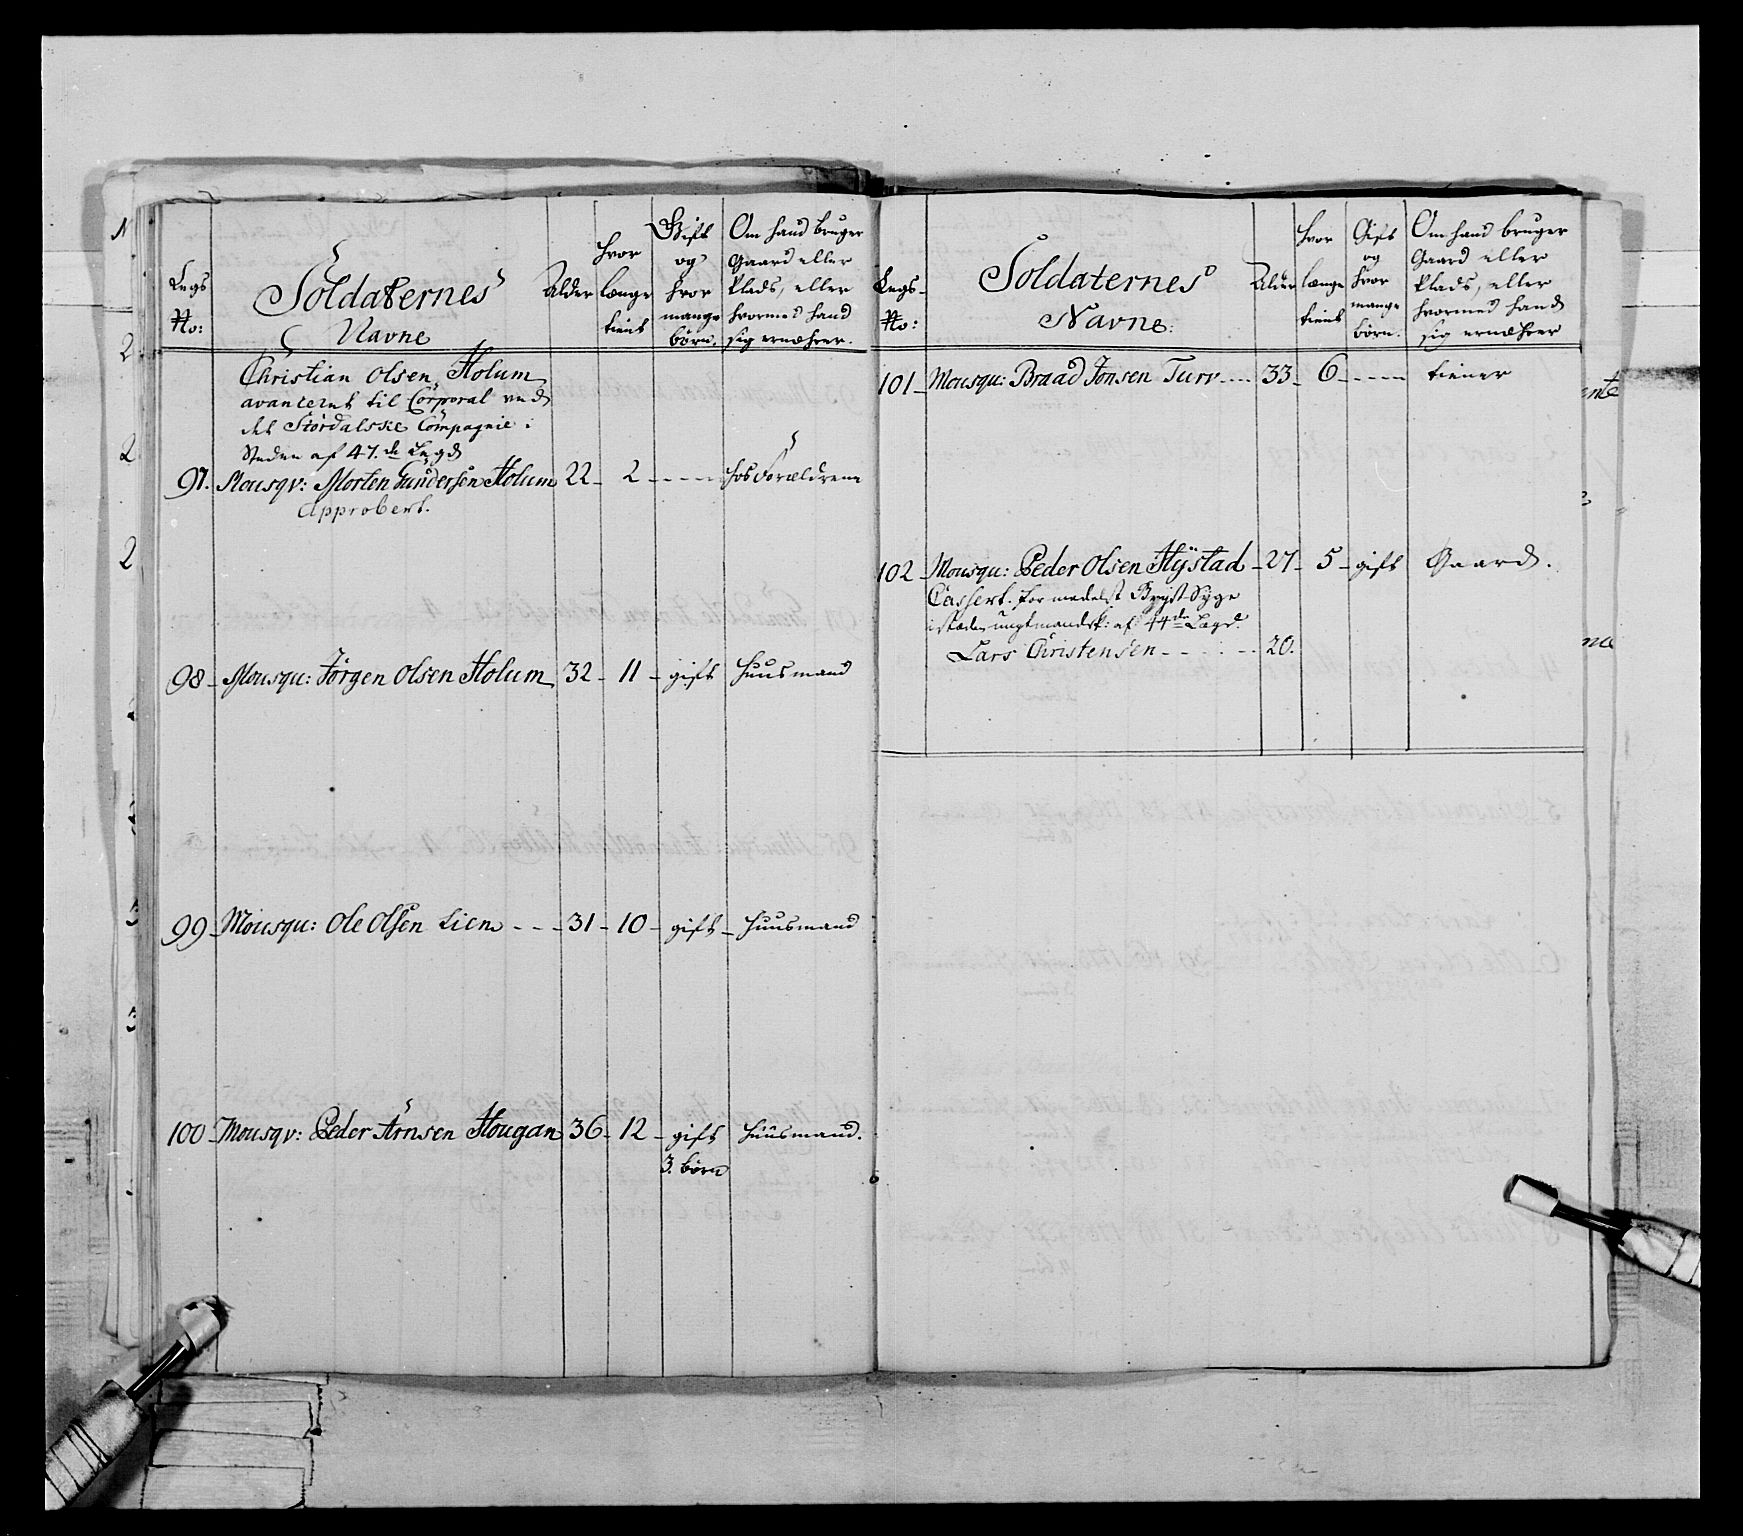 Legs No: Soldaternes Navne Alder hvor længe tient Gift og hvor mange børn. Om hand bruger Gaard eller Plads, eller hvormed hand sig ernæhrer.
Christian Olsen Holum
avanceret til Corporal ved
det Størdalske Compagnie i
Steden af 47.de Lægd
97. Mousqv: Morten Gundersen Holum 22 - 2 - - - - hos Forældrene
Approbert.
98 - Mousqu: Jörgen Olsen Holum 32 - 11 - gift huusmand
99 - Mousqu: Ole Olsen Lien - - - 31 - 10 - gift - huusmand
100 - Mousqv: Peder Arnsen Hougan 36 - 12 - gift huusmand.
3. børn
Legs- No: Soldaternes Navne: Alder hvor længe tient Gift og hvor mange børn. Om hand bruger Gaard eller Plads, eller hvormed hand sig ernæhrer
101 - Mousqu: Braad Jonsen Turv - - - 33 - 6 - - - - - tiener
102 - Mousqu: Peder Olsen Hÿstad - 27 - 5 - gift Gaard.
Cassert formedelst Bryst Syge
isteden ungtmandsk: af 44de Lægd.
Lars Christensen - - - - - 20.